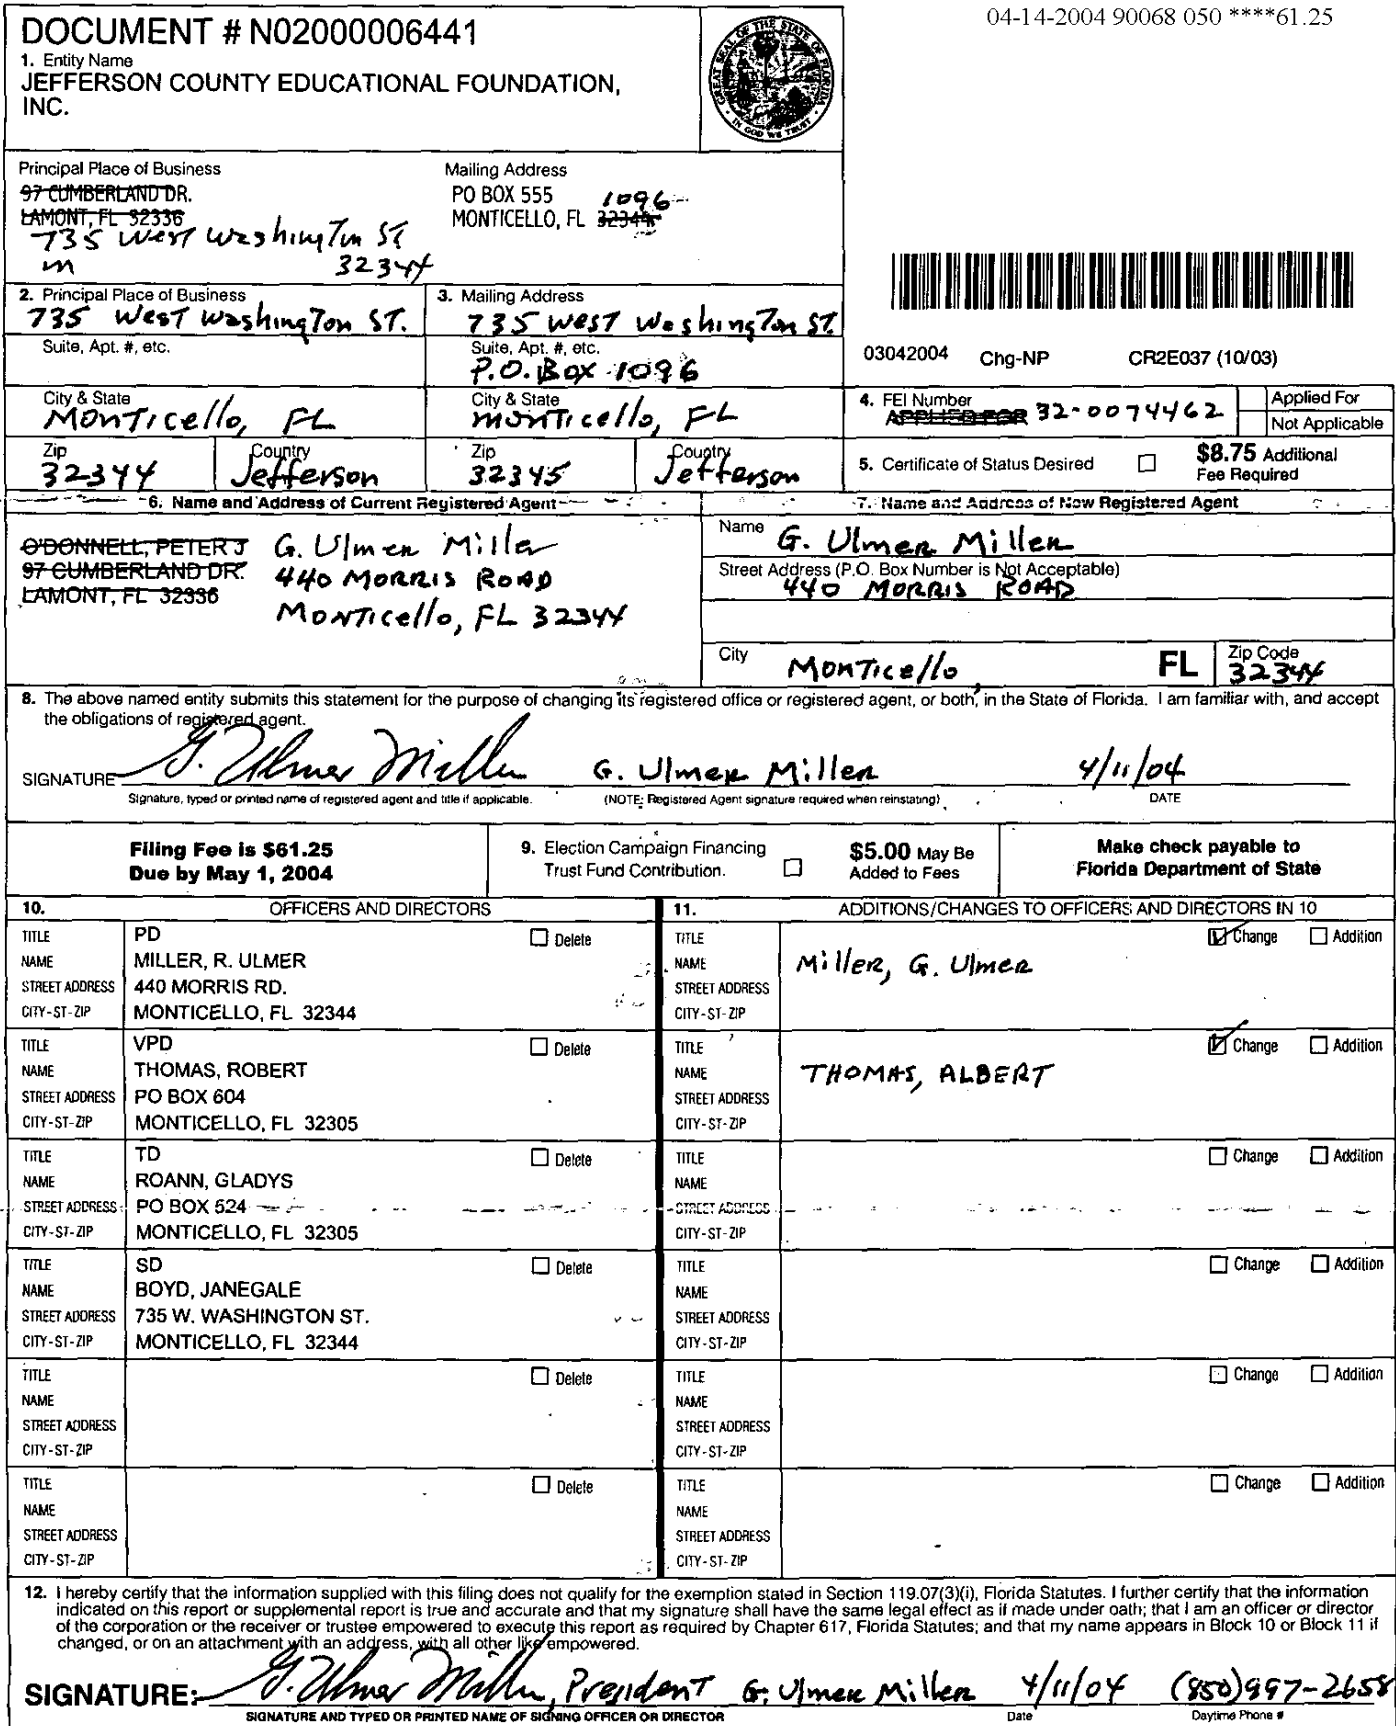 04-14-2004 90068 050 ****61.25
DOCUMENT # N02000006441
1. Entity Name
JEFFERSON COUNTY EDUCATIONAL FOUNDATION,
INC.
GREAT SEAL OF THE STATE OF FLORIDA
IN GOD WE TRUST
Principal Place of Business
97 CUMBERLAND DR.
LAMONT, FL 32336
735 West Washington ST
m 32344
Mailing Address
PO BOX 555 1096
MONTICELLO, FL 32344
2. Principal Place of Business
735 West Washington ST.
Suite, Apt. #, etc.
City & State
Monticello, FL
Zip
32344
Country
Jefferson
3. Mailing Address
735 West Washington ST.
Suite, Apt. #, etc.
P.O. Box 1096
City & State
Monticello, FL
Zip
32345
Country
Jefferson
03042004 Chg-NP CR2E037 (10/03)
4. FEI Number
APPLIED FOR 32-0074462
Applied For
Not Applicable
5. Certificate of Status Desired
$8.75 Additional
Fee Required
6. Name and Address of Current Registered Agent
O'DONNELL, PETER J
97 CUMBERLAND DR.
LAMONT, FL 32336
G. Ulmer Miller
440 MORRIS ROAD
Monticello, FL 32344
7. Name and Address of New Registered Agent
Name
G. Ulmer Miller
Street Address (P.O. Box Number is Not Acceptable)
440 MORRIS ROAD
City
Monticello, FL
Zip Code
32344
8. The above named entity submits this statement for the purpose of changing its registered office or registered agent, or both, in the State of Florida. I am familiar with, and accept
the obligations of registered agent.
SIGNATURE G. Ulmer Miller G. Ulmer Miller 4/11/04
Signature, typed or printed name of registered agent and title if applicable. (NOTE: Registered Agent signature required when reinstating) DATE
Filing Fee is $61.25
Due by May 1, 2004
9. Election Campaign Financing
Trust Fund Contribution.
$5.00 May Be
Added to Fees
Make check payable to
Florida Department of State
10. OFFICERS AND DIRECTORS
TITLE PD Delete
NAME MILLER, R. ULMER
STREET ADDRESS 440 MORRIS RD.
CITY-ST-ZIP MONTICELLO, FL 32344
TITLE VPD Delete
NAME THOMAS, ROBERT
STREET ADDRESS PO BOX 604
CITY-ST-ZIP MONTICELLO, FL 32305
TITLE TD Delete
NAME ROANN, GLADYS
STREET ADDRESS PO BOX 524
CITY-ST-ZIP MONTICELLO, FL 32305
TITLE SD Delete
NAME BOYD, JANEGALE
STREET ADDRESS 735 W. WASHINGTON ST.
CITY-ST-ZIP MONTICELLO, FL 32344
TITLE Delete
NAME
STREET ADDRESS
CITY-ST-ZIP
TITLE Delete
NAME
STREET ADDRESS
CITY-ST-ZIP
11. ADDITIONS/CHANGES TO OFFICERS AND DIRECTORS IN 10
TITLE Change Addition
NAME Miller, G. Ulmer
STREET ADDRESS
CITY-ST-ZIP
TITLE Change Addition
NAME THOMAS, ALBERT
STREET ADDRESS
CITY-ST-ZIP
TITLE Change Addition
NAME
STREET ADDRESS
CITY-ST-ZIP
TITLE Change Addition
NAME
STREET ADDRESS
CITY-ST-ZIP
TITLE Change Addition
NAME
STREET ADDRESS
CITY-ST-ZIP
TITLE Change Addition
NAME
STREET ADDRESS
CITY-ST-ZIP
12. I hereby certify that the information supplied with this filing does not qualify for the exemption stated in Section 119.07(3)(i), Florida Statutes. I further certify that the information
indicated on this report or supplemental report is true and accurate and that my signature shall have the same legal effect as if made under oath; that I am an officer or director
of the corporation or the receiver or trustee empowered to execute this report as required by Chapter 617, Florida Statutes; and that my name appears in Block 10 or Block 11 if
changed, or on an attachment with an address, with all other like empowered.
SIGNATURE: G. Ulmer Miller, President G. Ulmer Miller 4/11/04 (850)997-2658
SIGNATURE AND TYPED OR PRINTED NAME OF SIGNING OFFICER OR DIRECTOR Date Daytime Phone #